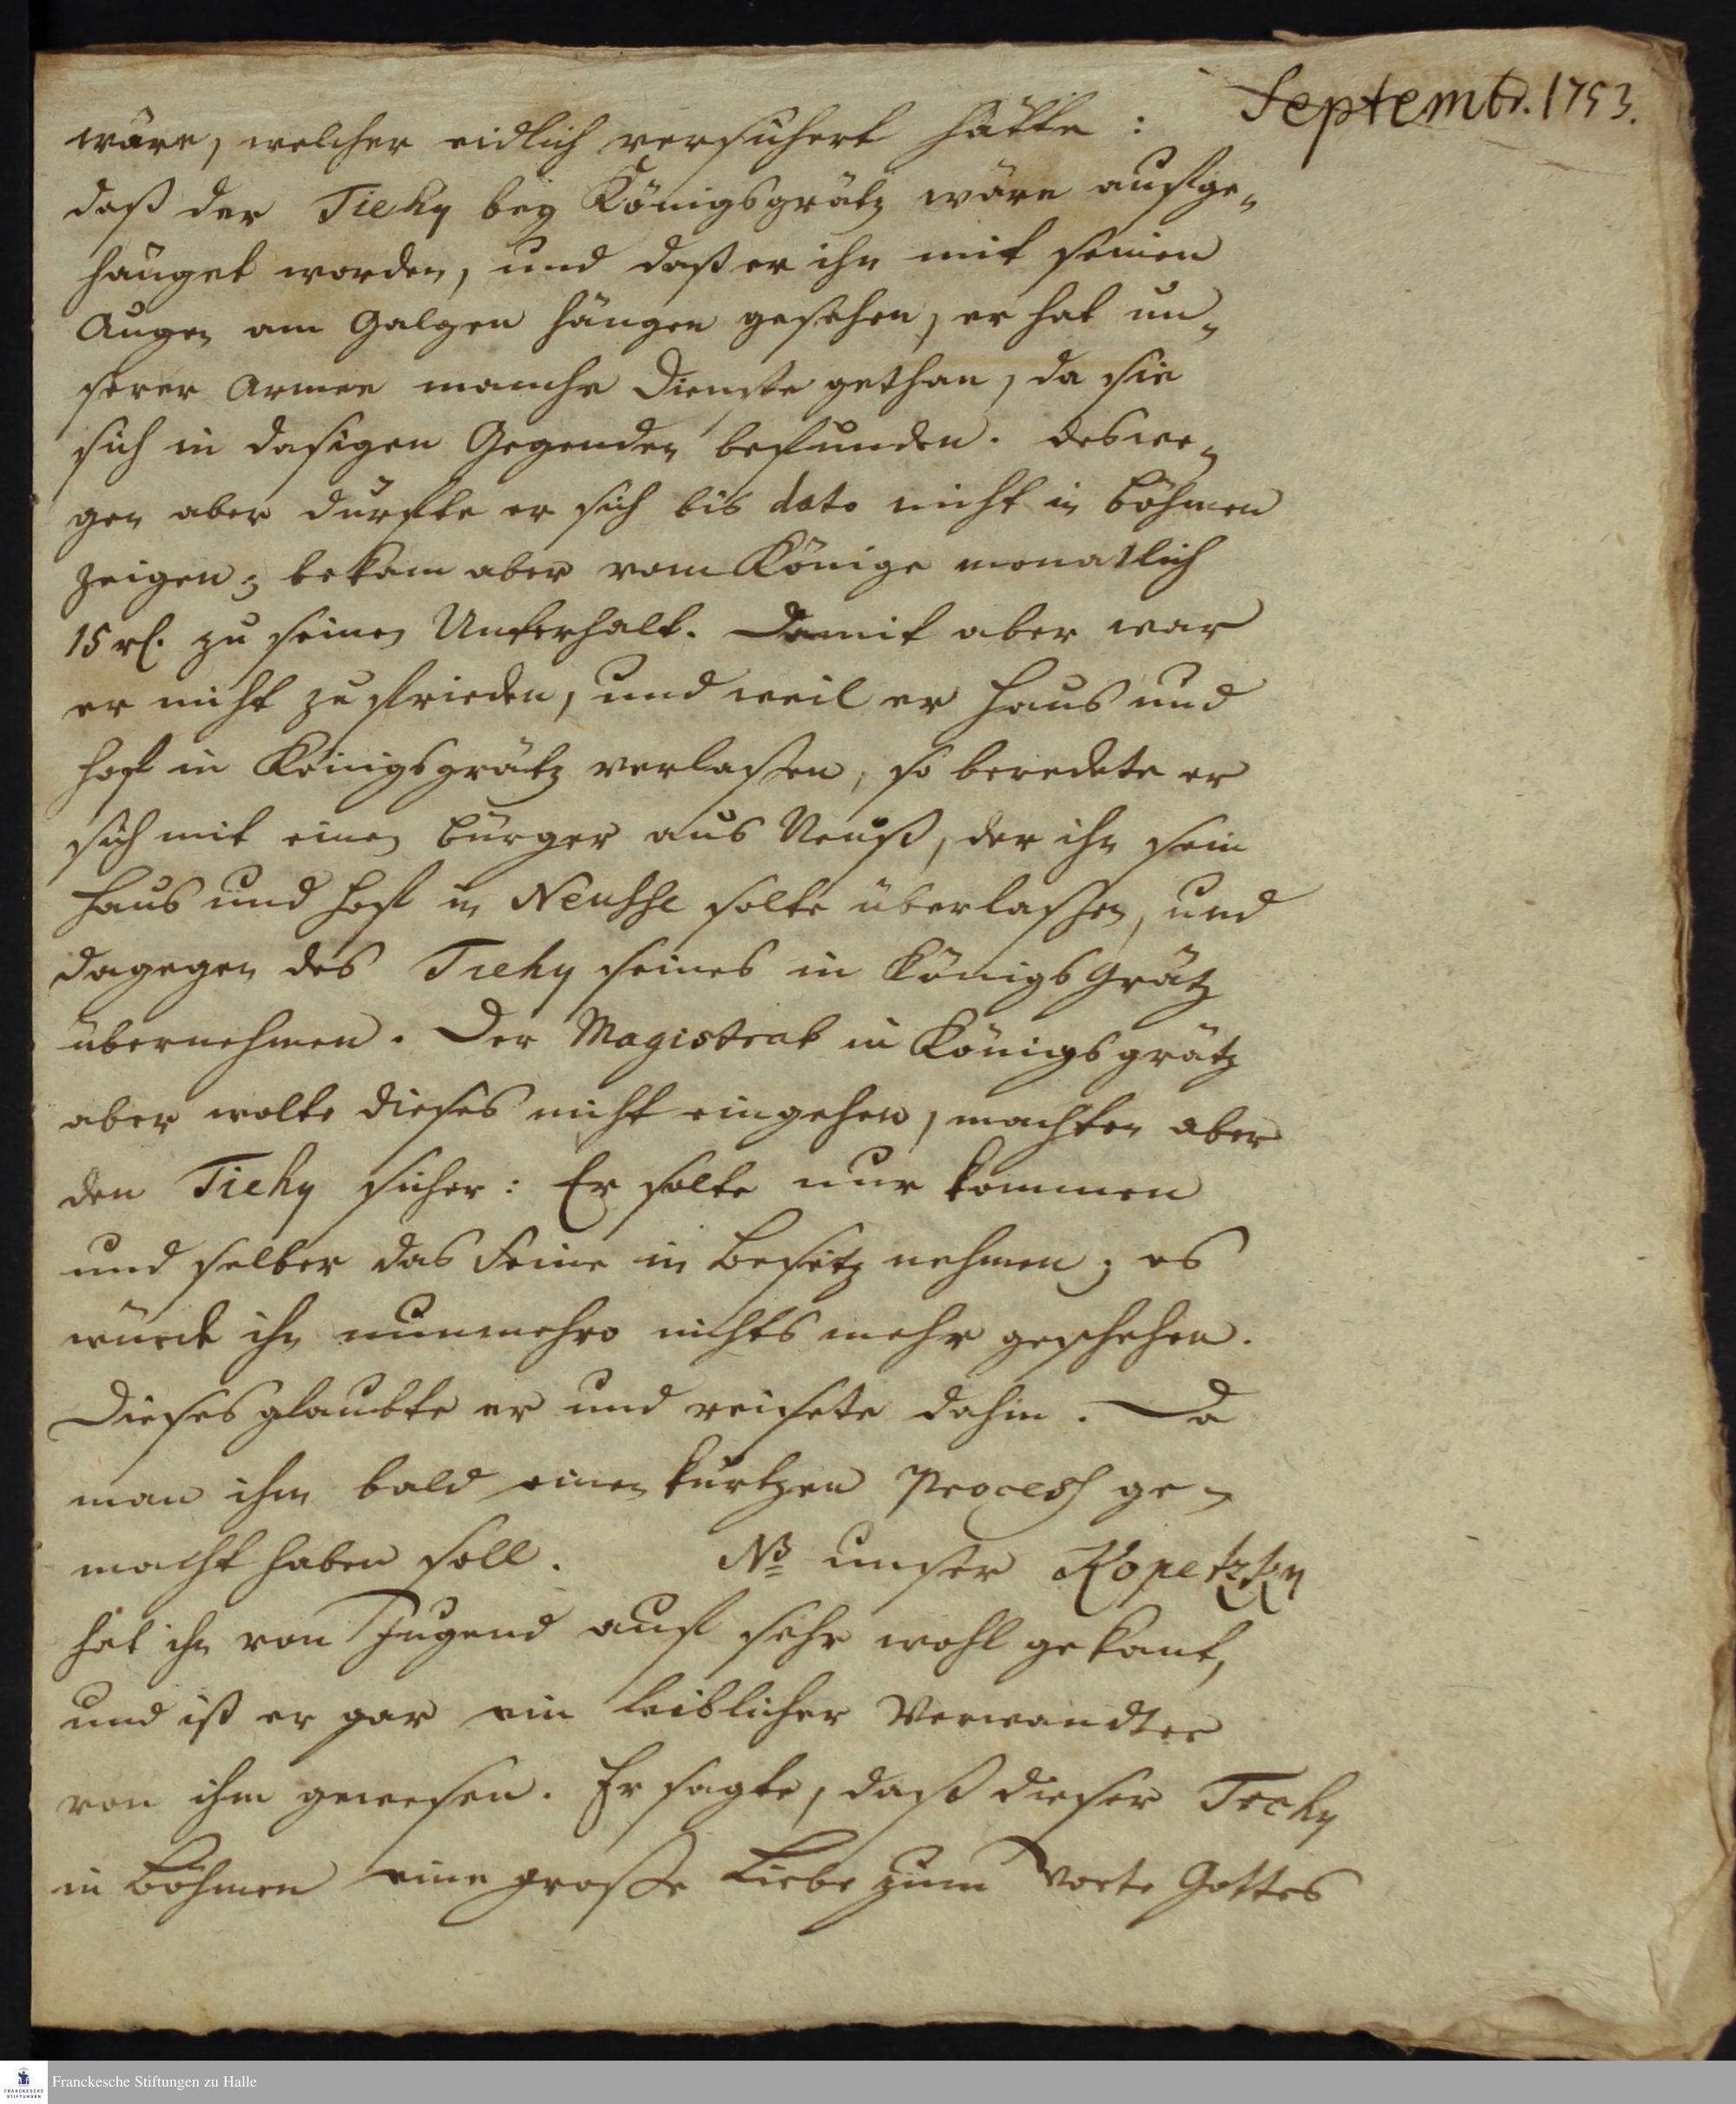 Septembr. 1753.
wäre, welcher eidlich versichert hätte:
daß der Tichy bey Königsgrätz wäre aufge-
hänget worden, und daß er ihn mit seinen
Augen am Galgen hängen gesehen, er hat un-
serer Armee manche Dienste gethan, da sie
sich in dasigen Gegenden befunden. Deswe-
gen aber durfte er sich bis dato nicht in Böhmen
zeigen; bekam aber vom Könige monatlich
15 rl. zu seinen Unterhalt. Damit aber war
er nicht zufrieden, und weil er Haus und
Hoff in Königsgrätz verlaßen, so beredete er
sich mit einen Bürger aus Neuß, der ihn sein
Haus und Hoff in Neusse solte überlaßen, und
dagegen des Tichy seines in Königs Grätz
übernehmen. Der Magistrat in Königsgrätz
aber wolte dieses nicht eingehen, machten aber
den Tichy sicher: Er solte nur kommen
und selber das Seine in Besitz nehmen; es
würde ihn nunmehro nichts mehr geschehen.
Dieses glaubte er und reisete dahin. Da
man ihm bald einen kurtzen Process ge-
macht haben soll. NB unser Kopetzky
hat ihn von Jugend auf sehr wohl gekant,
und ist er gar ein leiblicher Verwandter
von ihm gewesen. Er sagte, daß dieser Techy
in Böhmen eine große Liebe zum Worte Gottes
FRANCKESCHE
STIFTUNGEN
Franckesche Stiftungen zu Halle